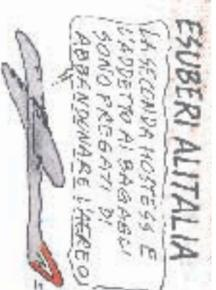 ESUBERI ALITALIA
LA SECONDA HOSTESS E
L'ADDETTO AI BAGAGLI
SONO PREGATI DI
ABBANDONARE L'AEREO